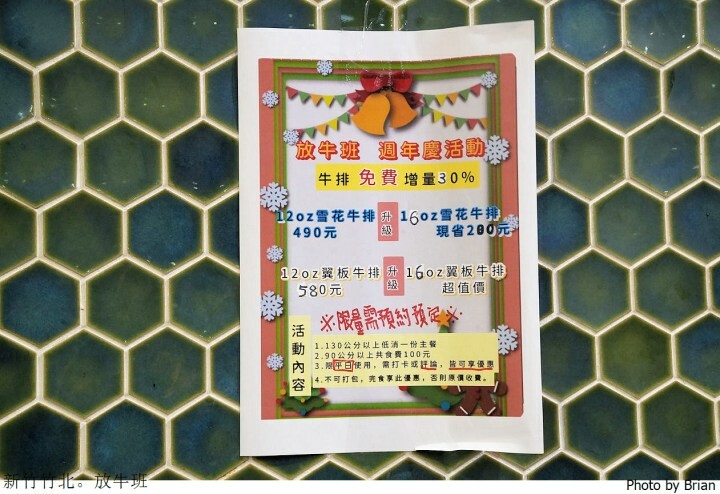 放牛班 週年慶活動
牛排 免費 增量30%
12oz雪花牛排 升級 16oz雪花牛排
490元 現省200元
12oz翼板牛排 升級 16oz翼板牛排
580元 超值價
※限量需預約預定※
活動內容
1.130公分以上低消一份主餐
2.90公分以上共食費100元
3.限平日使用，需打卡或評論，皆可享優惠
4.不可打包，完食享此優惠，否則原價收費。
新竹竹北。放牛班
Photo by Brian